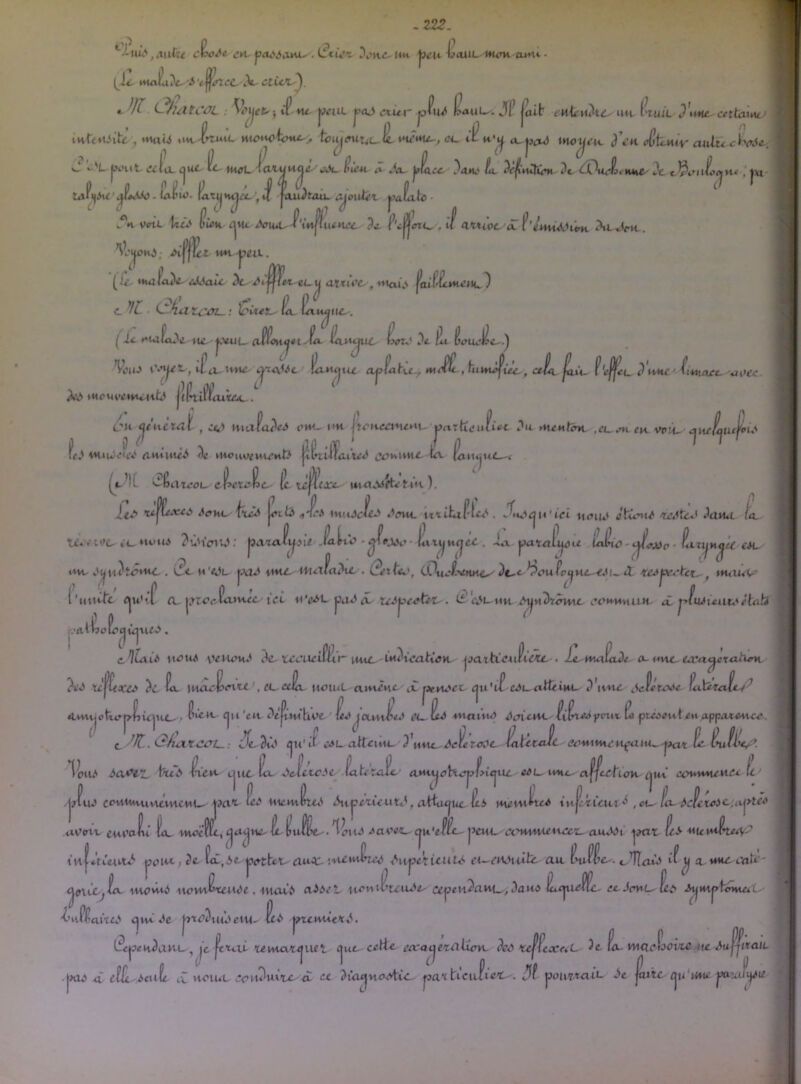 - 222 -
Puis, autre chose en passant. Criez donc un peu haut mon ami.
(Le malade s'efforce de crier).
M. Charcot : Voyez ; il ne peut pas crier plus haut. Il fait entendre un bruit d'une certaine
intensité, mais un bruit monotone, toujours le même, et il n'y a pas moyen d'en obtenir autre chose.
C'est pour cela que le mot laryngé est bien à sa place dans la définition de Duchenne de Boulogne, pa-
ralysie glosso-labio-laryngée, il faudrait ajouter palato -
On voit très bien que sous l'influence de l'effort, il arrive à l'émission du son.
Voyons : sifflez un peu.
(Le malade essaie de siffler et y arrive, mais faiblement)
M. Charcot : Tirez la langue.
(Le malade ne peut allonger la langue hors de la bouche.)
Vous voyez, il a une grosse langue aplatie, molle, tuméfiée, cela fait l'effet d'une limace avec
des mouvements fibrillaires.
En général, ces malades ont un froncement particulier du menton, et on en voit quelquefois
les muscles animés de mouvements fibrillaires comme la langue.
(M. Charcot cherche le réflexe massétérin).
Les réflexes sont très forts, les muscles sont irritables. Jusqu'ici nous étions restés dans la
réserve et nous disions : paralysie labio-glosso-laryngée. La paralysie labio-glosso-laryngée est
un syndrôme. Ce n'est pas une maladie. Certes, Duchenne de Boulogne est à respecter, mais
l'unité qu'il a proclamée ici n'est pas à respecter. C'est un syndrôme commun à plusieurs états
pathologiques.
Mais nous venons de recueillir une indication particulière. Le malade a une exagération
des réflexes de la mâchoire, et cela nous amène à penser qu'il est atteint d'une sclérose latérale
amyotrophique, bien qu'en définitive les jambes et les mains soient libres pour le présent en apparence.
M. Charcot : Je dis qu'il est atteint d'une sclérose latérale commençant par le bulbe.
Vous savez très bien que la sclérose latérale amyotrophique est une affection qui commence le
plus communément par les membres supérieurs, attaque les membres inférieurs, et la sclérose, après
avoir envahi la moelle, gagne le bulbe. Vous savez qu'elle peut commencer aussi par les membres
inférieurs pour, de là, se porter aux membres supérieurs et ensuite au bulbe. Mais il y a une caté-
gorie, la moins nombreuse, mais assez nombreuse cependant, dans laquelle ce sont les symptômes
bulbaires qui se produisent les premiers.
Cependant, je ferai remarquer que cette exagération des réflexes de la mâchoire ne suffirait
pas à elle seule à nous conduire à ce diagnostic particulier. Il pourrait se faire qu'une paralysie